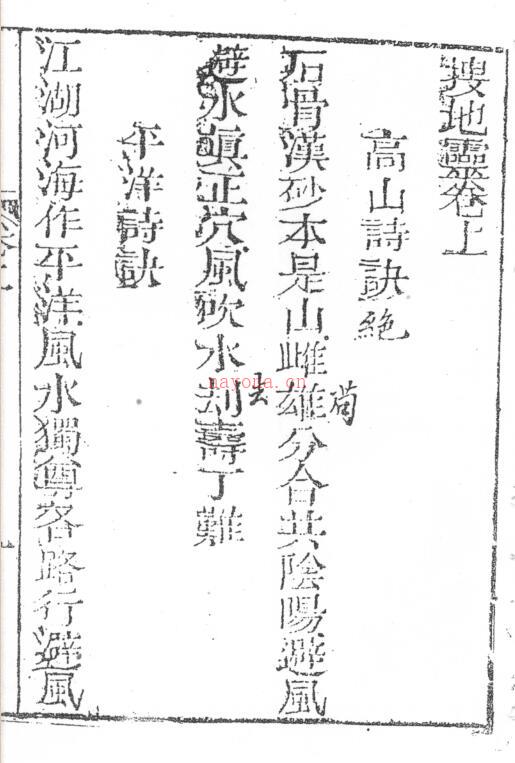 搜地靈卷上
高山詩訣絕
石骨漢砂本是山雌雄分合共陰陽避風
避水真正穴風吹水刦壽丁難
去
苟
平洋詩訣
江湖河海作平洋風水獨尊各路行避風
nayona.cn